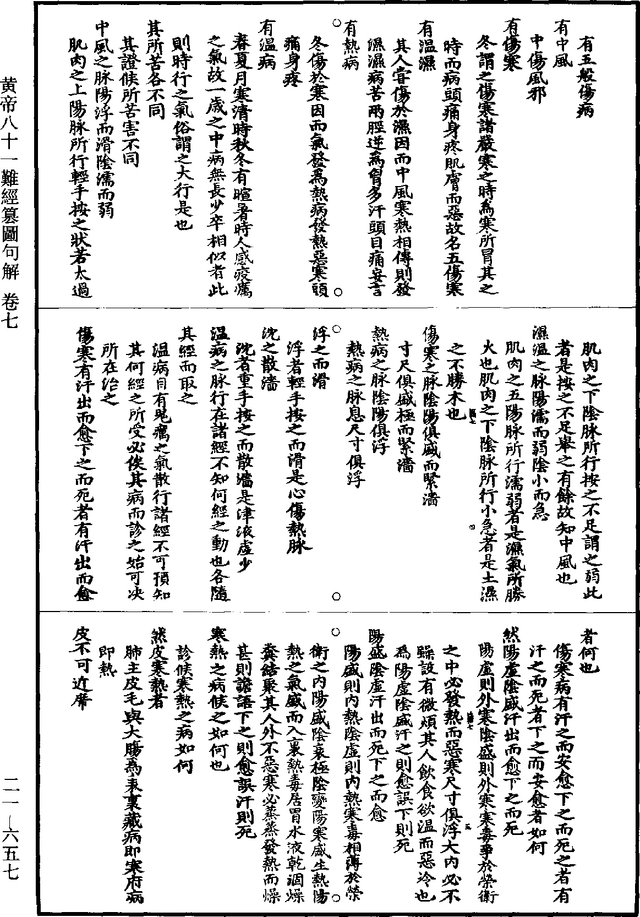 黃帝八十一難經纂圖句解 卷七
二一—六五七
有五般傷病
有中風
中傷風邪
有傷寒
冬謂之傷寒諸嚴寒之時為寒所冒其之
時而病頭痛身疼肌膚而惡故名五傷寒
有溫濕
其人嘗傷於濕因而中風寒熱相傳則發
濕濕病苦兩脛逆為胷多汗頭目痛妄言
有熱病
冬傷於寒因而氣發為熱病發熱惡寒頭
痛身疼
有溫病
春夏月寒清時秋冬有暄暑時人感疫癘
之氣故一歲之中病無長少卒相似者此
則時行之氣俗謂之大行是也
其所苦各不同
其證候所苦害不同
中風之脉陽浮而滑陰濡而弱
肌肉之上陽脉所行輕手按之狀若太過
肌肉之下陰脉所行按之不足謂之弱此
者是按之不足舉之有餘故知中風也
濕溫之脉陽濡而弱陰小而急
肌肉之五陽脉所行濡弱者是濕氣所勝
火也肌肉之下陰脉所行小急者是土濕
之不勝木也
傷寒之脉陰陽俱盛而緊濇
寸尺俱盛極而緊濇
熱病之脉陰陽俱浮
熱病之脉息尺寸俱浮
浮之而滑
浮者輕手按之而滑是心傷熱脉
沈之散濇
沈者重手按之而散濇是津液虛少
溫病之脉行在諸經不知何經之動也各隨
其經而取之
溫病自有鬼癘之氣散行諸經不可預知
其何經之所受必俟其病而診之始可决
所在治之
傷寒有汗出而愈下之而死者有汗出而愈
者何也
傷寒病有汗之而安愈下之而死之者有
汗之而死者下之而安愈者如何
然陽虛陰盛汗出而愈下之而死
陽虛則外寒陰盛則外寒寒毒爭於榮衛
之中必發熱而惡寒尺寸俱浮大內必不
躁設有微煩其人飲食欲溫而惡冷也
為陽虛陰盛汗之則愈誤下則死
陽盛陰虛汗出而死下之而愈
陽盛則內熱陰虛則內熱寒毒相薄於榮
衛之內陽盛陰衰極陰變陽寒盛生熱陽
熱之氣盛而入裏熱毒居胃水液乾涸燥
糞結聚其人外不惡寒必蒸蒸發熱而燥
甚則譫語下之則愈誤汗則死
寒熱之病候之如何也
診候寒熱之病如何
然皮寒熱者
肺主皮毛與大腸為表裏藏病即寒府病
即熱
皮不可近席